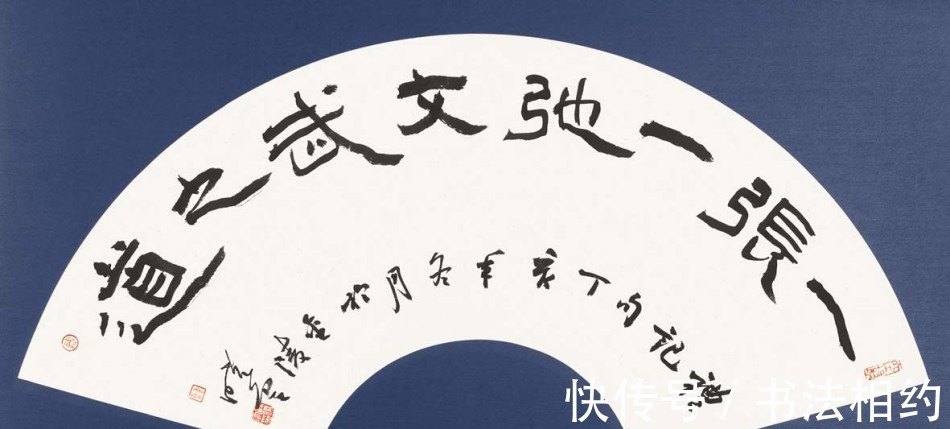 一張一弛文武之道
禮記句丁亥年冬月於金陵
快传号 / 书法相约